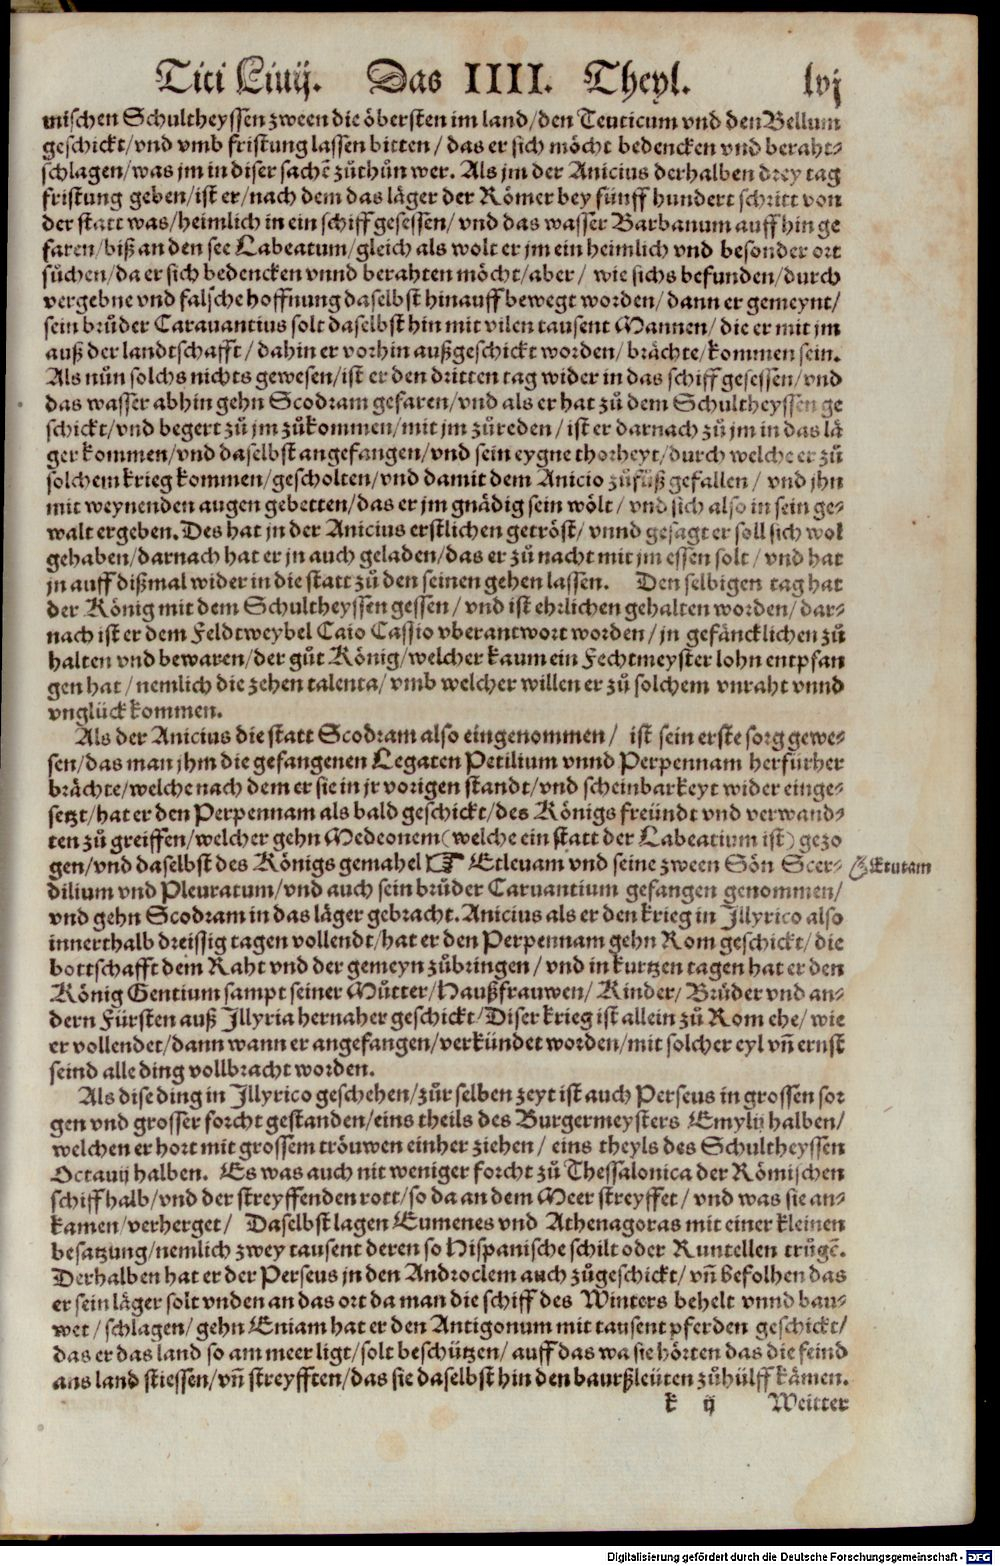 Titi Liuij. Das IIII. Theyl. lvj
mischen Schultheyssen zween die öbersten im land/ den Teuticum vnd den Bellum
geschickt/ vnd vmb fristung lassen bitten/ das er sich möcht bedencken vnd beraht-
schlagen/ was jm in diser sachẽ zůthůn wer. Als jm der Anicius derhalben drey tag
fristung geben/ ist er/ nach dem das läger der Römer bey fünff hundert schritt von
der statt was/ heimlich in ein schiff gesessen/ vnd das wasser Barbanum auff hin ge
faren/ biß an den see Labeatum/ gleich als wolt er jm ein heimlich vnd besonder ort
sůchen/ da er sich bedencken vnnd berahten möcht/ aber/ wie sichs befunden/ durch
vergebne vnd falsche hoffnung daselbst hinauff bewegt worden/ dann er gemeynt/
sein brůder Carauantius solt daselbst hin mit vilen tausent Mannen/ die er mit jm
auß der landtschafft/ dahin er vorhin außgeschickt worden/ brächte/ kommen sein.
Als nůn solchs nichts gewesen/ ist er den dritten tag wider in das schiff gesessen/ vnd
das wasser abhin gehn Scodram gefaren/ vnd als er hat zů dem Schultheyssen ge
schickt/ vnd begert zů jm zůkommen/ mit jm zůreden/ ist er darnach zů jm in das lä
ger kommen/ vnd daselbst angefangen/ vnd sein eygne thorheyt/ durch welche er zů
solchem krieg kommen/ gescholten/ vnd damit dem Anicio zůfůß gefallen/ vnd jhn
mit weynenden augen gebetten/ das er jm gnädig sein wölt/ vnd sich also in sein ge-
walt ergeben. Des hat jn der Anicius erstlichen getröst/ vnnd gesagt er soll sich wol
gehaben/ darnach hat er jn auch geladen/ das er zů nacht mit jm essen solt/ vnd hat
jn auff dißmal wider in die statt zů den seinen gehen lassen. Den selbigen tag hat
der König mit dem Schultheyssen gessen/ vnd ist ehrlichen gehalten worden/ dar-
nach ist er dem Feldtweybel Caio Cassio vberantwort worden/ jn gefäncklichen zů
halten vnd bewaren/ der gůt König/ welcher kaum ein Fechtmeyster lohn entpfan
gen hat/ nemlich die zehen talenta/ vmb welcher willen er zů solchem vnraht vnnd
vnglück kommen.
Als der Anicius die statt Scodram also eingenommen/ ist sein erste sorg gewe-
sen/ das man jhm die gefangenen Legaten Petilium vnnd Perpennam herfürher
brächte/ welche nach dem er sie in jr vorigen standt/ vnd scheinbarkeyt wider einge-
setzt/ hat er den Perpennam als bald geschickt/ des Königs freündt vnd verwand-
ten zů greiffen/ welcher gehn Medeonem (welche ein statt der Labeatium ist) gezo
gen/ vnd daselbst des Königs gemahel ☞ Etleuam vnd seine zween Sön Scer-
Etutam
dilium vnd Pleuratum/ vnd auch sein brůder Caruantium gefangen genommen/
vnd gehn Scodram in das läger gebracht. Anicius als er den krieg in Illyrico also
innerthalb dreissig tagen vollendt/ hat er den Perpennam gehn Rom geschickt/ die
bottschafft dem Raht vnd der gemeyn zůbringen/ vnd in kurtzen tagen hat er den
König Gentium sampt seiner Můtter/ Haußfrauwen/ Kinder/ Brůder vnd an-
dern Fürsten auß Illyria hernaher geschickt/ Diser krieg ist allein zů Rom ehe/ wie
er vollendet/ dann wann er angefangen/ verkündet worden/ mit solcher eyl vñ ernst
seind alle ding vollbracht worden.
Als dise ding in Illyrico geschehen/ zůr selben zeyt ist auch Perseus in grossen sor
gen vnd grosser forcht gestanden/ eins theils des Burgermeysters Emylij halben/
welchen er hort mit grossem tröuwen einher ziehen/ eins theyls des Schultheyssen
Octauij halben. Es was auch nit weniger forcht zů Thessalonica der Römischen
schiff halb/ vnd der streyffenden rott/ so da an dem Meer streyffet/ vnd was sie an-
kamen/ verherget/ Daselbst lagen Eumenes vnd Athenagoras mit einer kleinen
besatzung/ nemlich zwey tausent deren so Hispanische schilt oder Runtellen trůgẽ.
Derhalben hat er der Perseus jn den Androclem auch zůgeschickt/ vñ befolhen das
er sein läger solt vnden an das ort da man die schiff des Winters behelt vnnd bau-
wet/ schlagen/ gehn Eniam hat er den Antigonum mit tausent pferden geschickt/
das er das land so am meer ligt/ solt beschützen/ auff das wa sie hörten das die feind
ans land stiessen/ vñ streyfften/ das sie daselbst hin den baurßleüten zůhülff kämen.
k ij Weitter
Digitalisierung gefördert durch die Deutsche Forschungsgemeinschaft - DFG